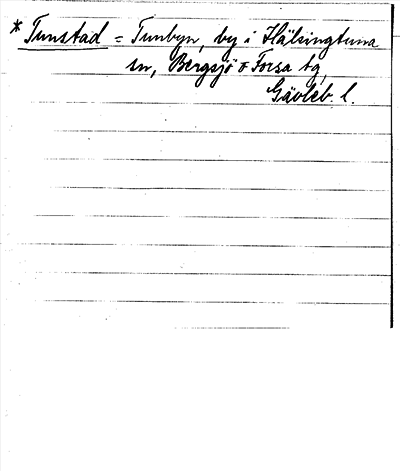 * Tunstad = Tunbyn, by i Hälsingtuna
sn, Bergsjö o Forsa tg,
Gävleb. l.